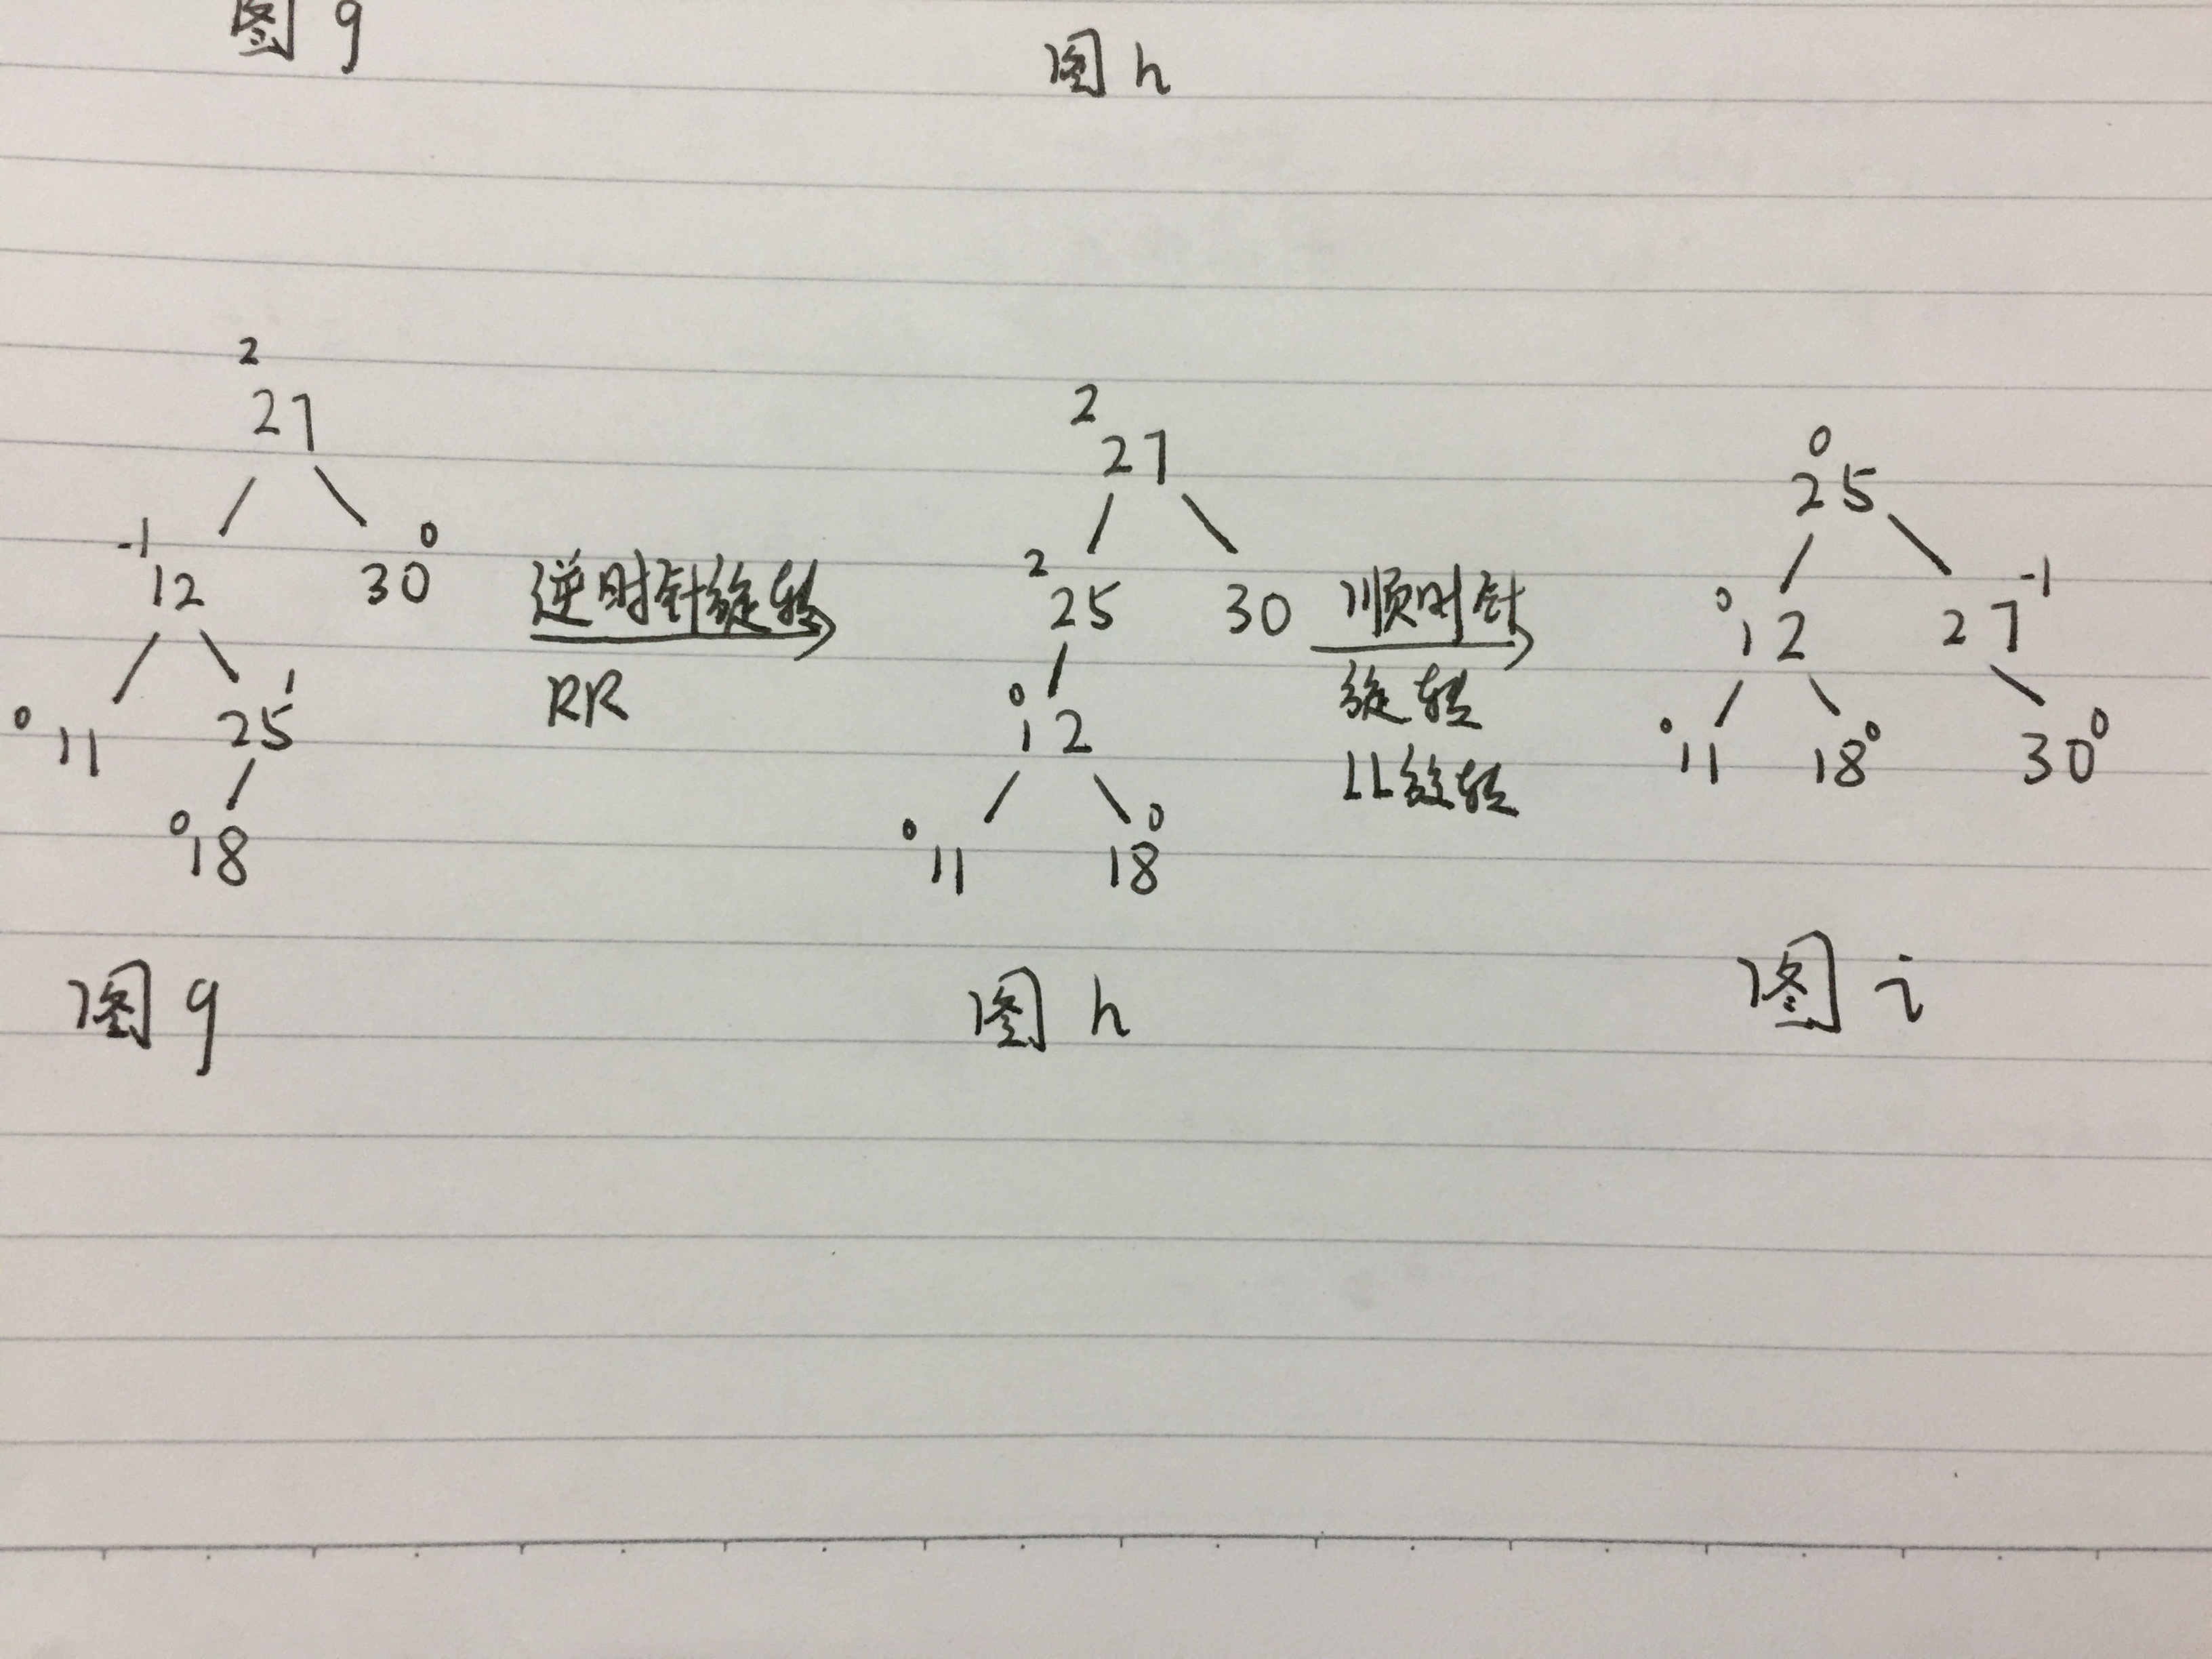 图 g
图 h
2
27
-1
12
0
30
0
11
1
25
0
18
逆时针旋转
RR
2
27
2
25
30
0
12
0
11
0
18
顺时针
旋转
LL旋转
0
25
0
12
-1
27
0
11
18
0
30
0
图 g
图 h
图 i